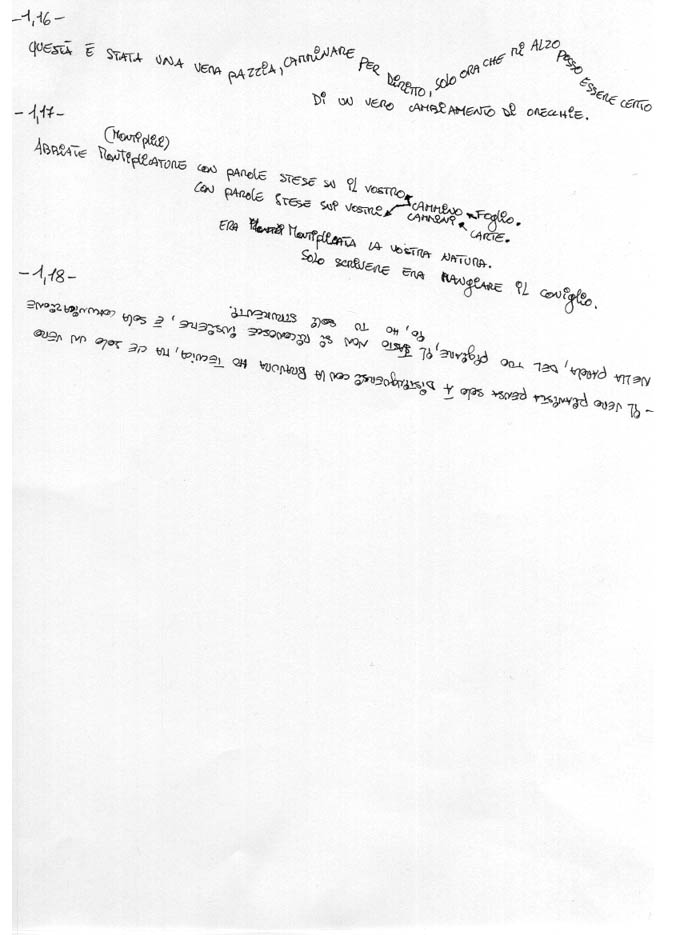 -1,16-
QUESTA È STATA UNA VERA PAZZIA, CAMMINARE PER DIRITTO, SOLO ORA CHE MI ALZO POSSO ESSERE CERTO
DI UN VERO CAMBIAMENTO DI ORECCHIE.
-1,17-
ABBIATE MONTIPLICATURE CON PAROLE STESE SU IL VOSTRO CAMMINO FOGLIO.
CON PAROLE STESE SUI VOSTRI CAMMINI CARTE.
ERA MONTIPLICATA LA VOSTRA NATURA.
SOLO SCRIVERE ERA MANGIARE IL CONIGLIO.
-1,18-
- IL VERO PIANISTA PENSA SOLO A DISTINGUERSI CON LA BRAVURA HO TECNICA, MA C'E SOLO UN VERO
NELLA PAROLA, DEL TUO PIGIARE, IL TASTO NON SI RICONOSCE INSIEME, È SOLA COMUNICAZIONE
IO, HO TU STRUMENTI.